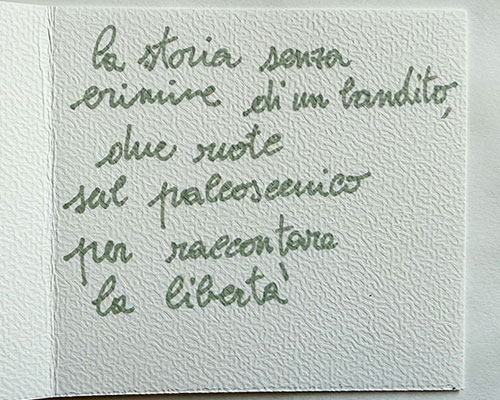 la storia senza
crimine di un bandito,
due ruote
sul palcoscenico
per raccontare
la libertà